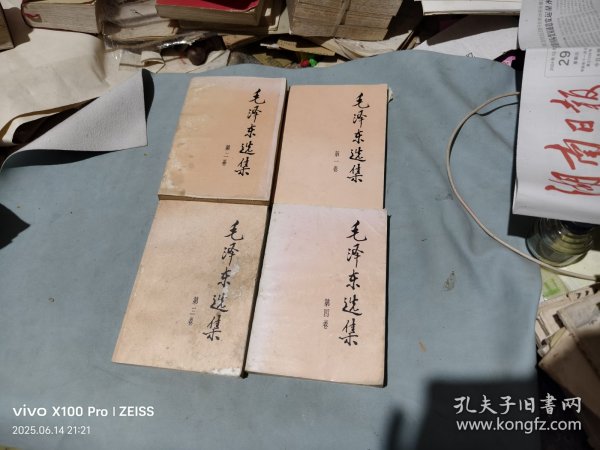 毛泽东选集
第二卷
毛泽东选集
第一卷
毛泽东选集
第三卷
毛泽东选集
第四卷
湖南日报
29
vivo X100 Pro | ZEISS
2025.06.14 21:21
孔夫子旧书网
www.kongfz.com